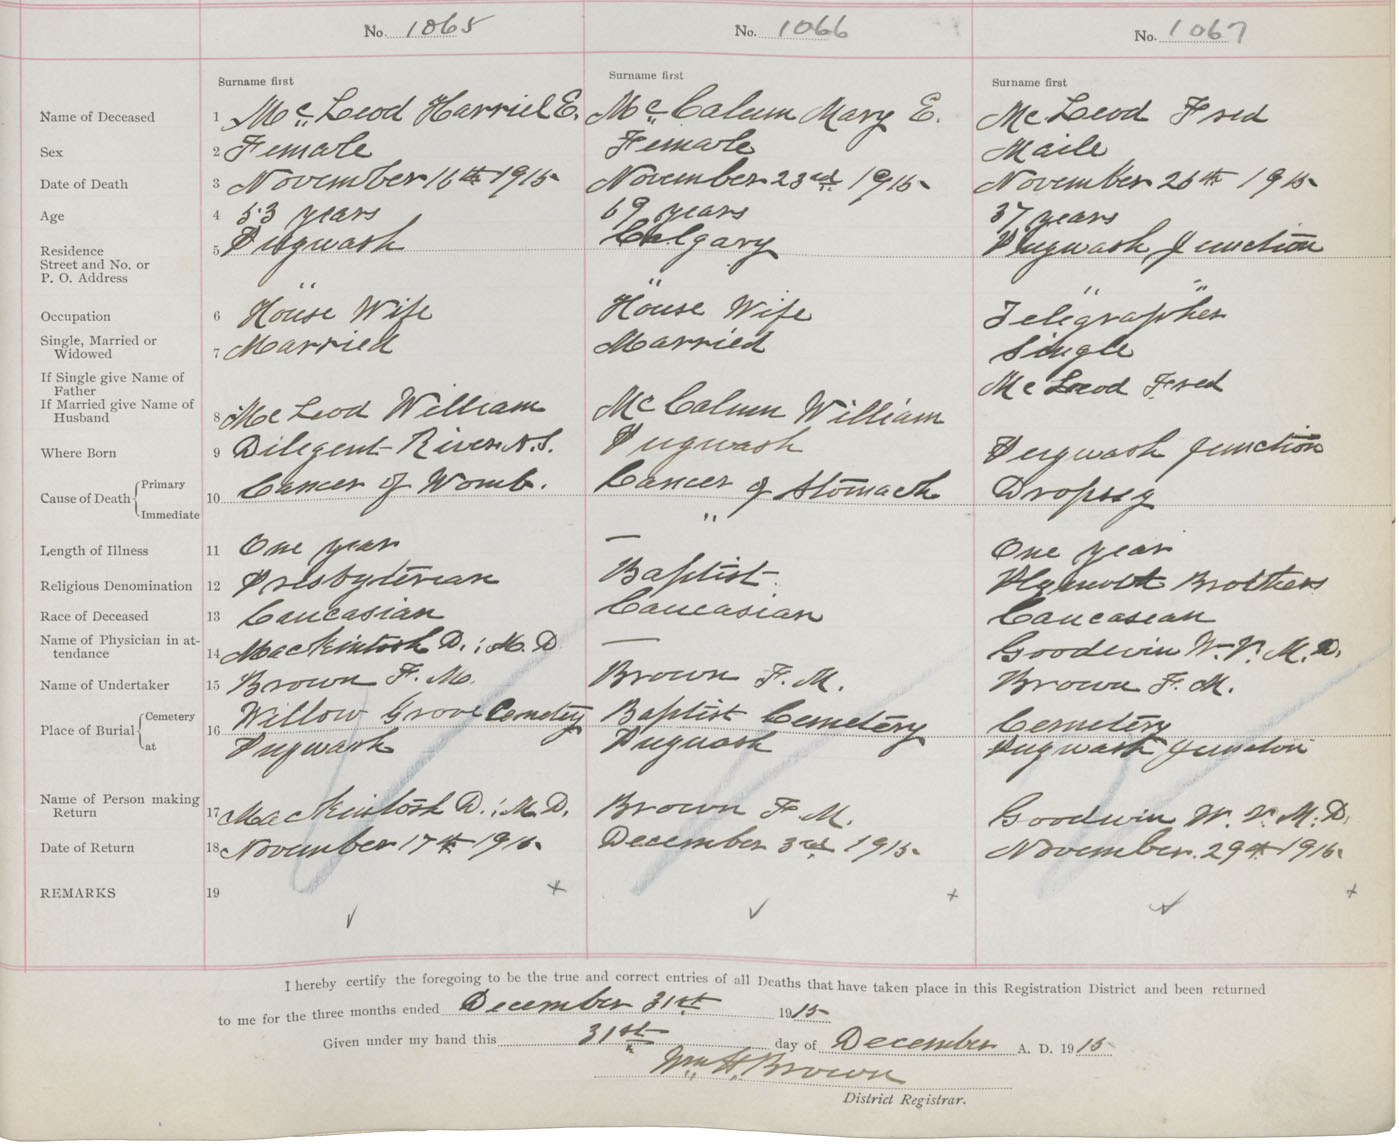 No. 1065 No. 1066 No. 1067
Surname first Surname first Surname first
Name of Deceased 1 Mc Leod Harriel E. Mc Calum Mary E. Mc Leod Fred
Sex 2 Female Female Maile
Date of Death 3 November 16th 1915 November 23rd 1915 November 26th 1915
Age 4 53 years 69 years 37 years
Residence 5 Pugwash Calgary Pugwash Junction
Street and No. or
P. O. Address " " "
Occupation 6 House Wife House Wife Telegrapher
Single, Married or
Widowed 7 Married Married Single
If Single give Name of
Father Mc Leod Fred
If Married give Name of
Husband 8 Mc Leod William Mc Calum William
Where Born 9 Diligent River N.S. Pugwash Pugwash Junction
Cause of Death { Primary
10 Cancer of Womb. Cancer of Stomach Dropsy
Immediate "
Length of Illness 11 One year — One year
Religious Denomination 12 Presbyterian Baptist Plymoth Brothers
Race of Deceased 13 Caucasian Caucasian Caucasean
Name of Physician in at-
tendance 14 MacKintosh D. : M. D — Goodwin W. V. M. D.
Name of Undertaker 15 Brown F. M. Brown F. M. Brown F. M.
Place of Burial { Cemetery 16 Willow Grove Cemetey Baptist Cemetery Cemetery
at Pugwash Pugwash Pugwash Junction
Name of Person making
Return 17 MacKintosh D. : M. D. Brown F M. Goodwin W. V. M. D.
Date of Return 18 November 17th 1915 December 3rd 1915 November 29th 1915
REMARKS 19
I hereby certify the foregoing to be the true and correct entries of all Deaths that have taken place in this Registration District and been returned
to me for the three months ended December 31st 1915
Given under my hand this 31st day of December A. D. 1915
Wm H. Brown
District Registrar.